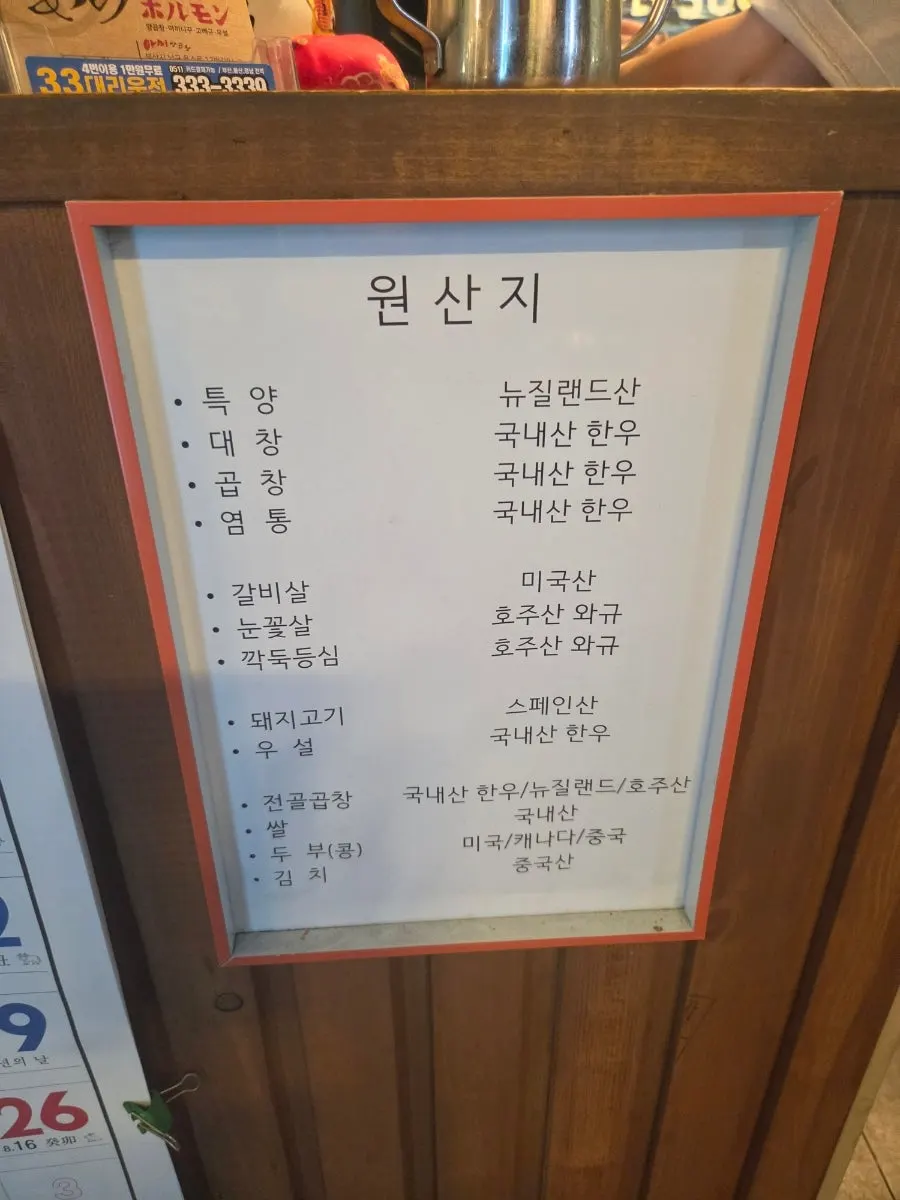 ホルモン
33대리운전
4번이용 1만원무료
333-3339
원산지
• 특 양 뉴질랜드산
• 대 창 국내산 한우
• 곱 창 국내산 한우
• 염 통 국내산 한우
• 갈비살 미국산
• 눈꽃살 호주산 와규
• 깍둑등심 호주산 와규
• 돼지고기 스페인산
• 우 설 국내산 한우
• 전골곱창 국내산 한우/뉴질랜드/호주산
• 쌀 국내산
• 두 부(콩) 미국/캐나다/중국
• 김 치 중국산
2
9
의 날
26
8.16 癸卯
3